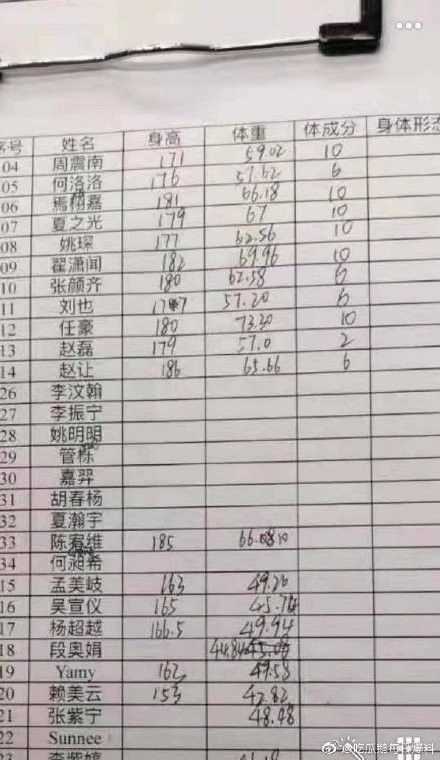 序号 姓名 身高 体重 体成分 身体形态
04 周震南 171 59.02 10
05 何洛洛 176 57.62 6
06 焉栩嘉 181 66.18 10
07 夏之光 179 67 10
08 姚琛 177 62.56 10
09 翟潇闻 182 69.96 10
10 张颜齐 180 62.58 6
11 刘也 57.20 6
12 任豪 180 73.30 10
13 赵磊 179 57.0 2
14 赵让 186 65.66 6
26 李汶翰
27 李振宁
28 姚明明
29 管栎
30 嘉羿
31 胡春杨
32 夏瀚宇
33 陈宥维 185 10
34 何昶希
15 孟美岐 163 49.20
16 吴宣仪 165
17 杨超越 166.5 49.94
18 段奥娟 44.84
19 Yamy 162 49.58
20 赖美云 153 42.82
21 张紫宁 48.48
22 Sunnee
23 李紫婷